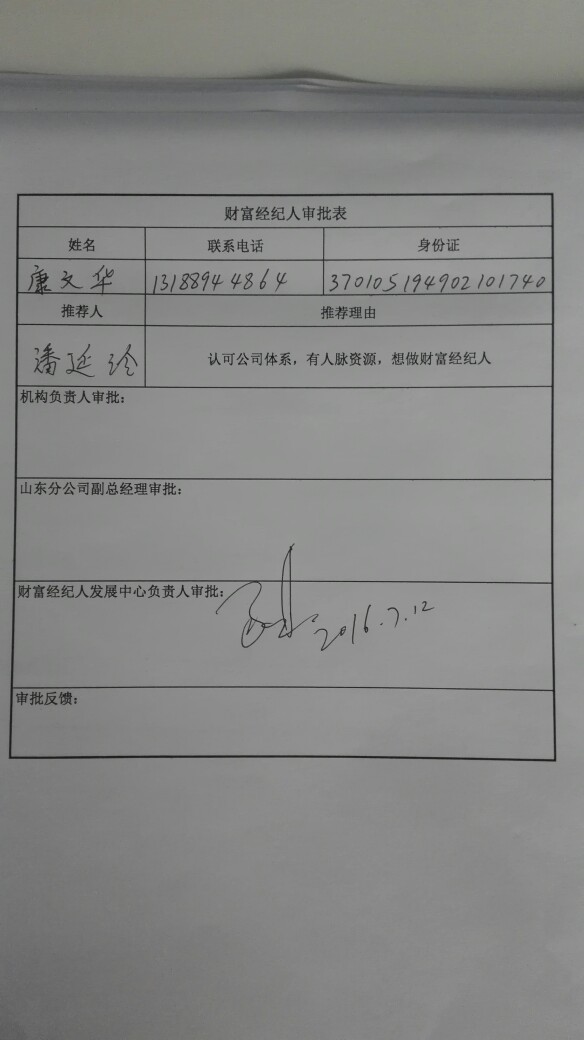 财富经纪人审批表
姓名 联系电话 身份证
康文华 13188944864 370105194902101740
推荐人 推荐理由
潘延玲 认可公司体系，有人脉资源，想做财富经纪人
机构负责人审批：
山东分公司副总经理审批：
财富经纪人发展中心负责人审批： 2016.7.12
审批反馈：